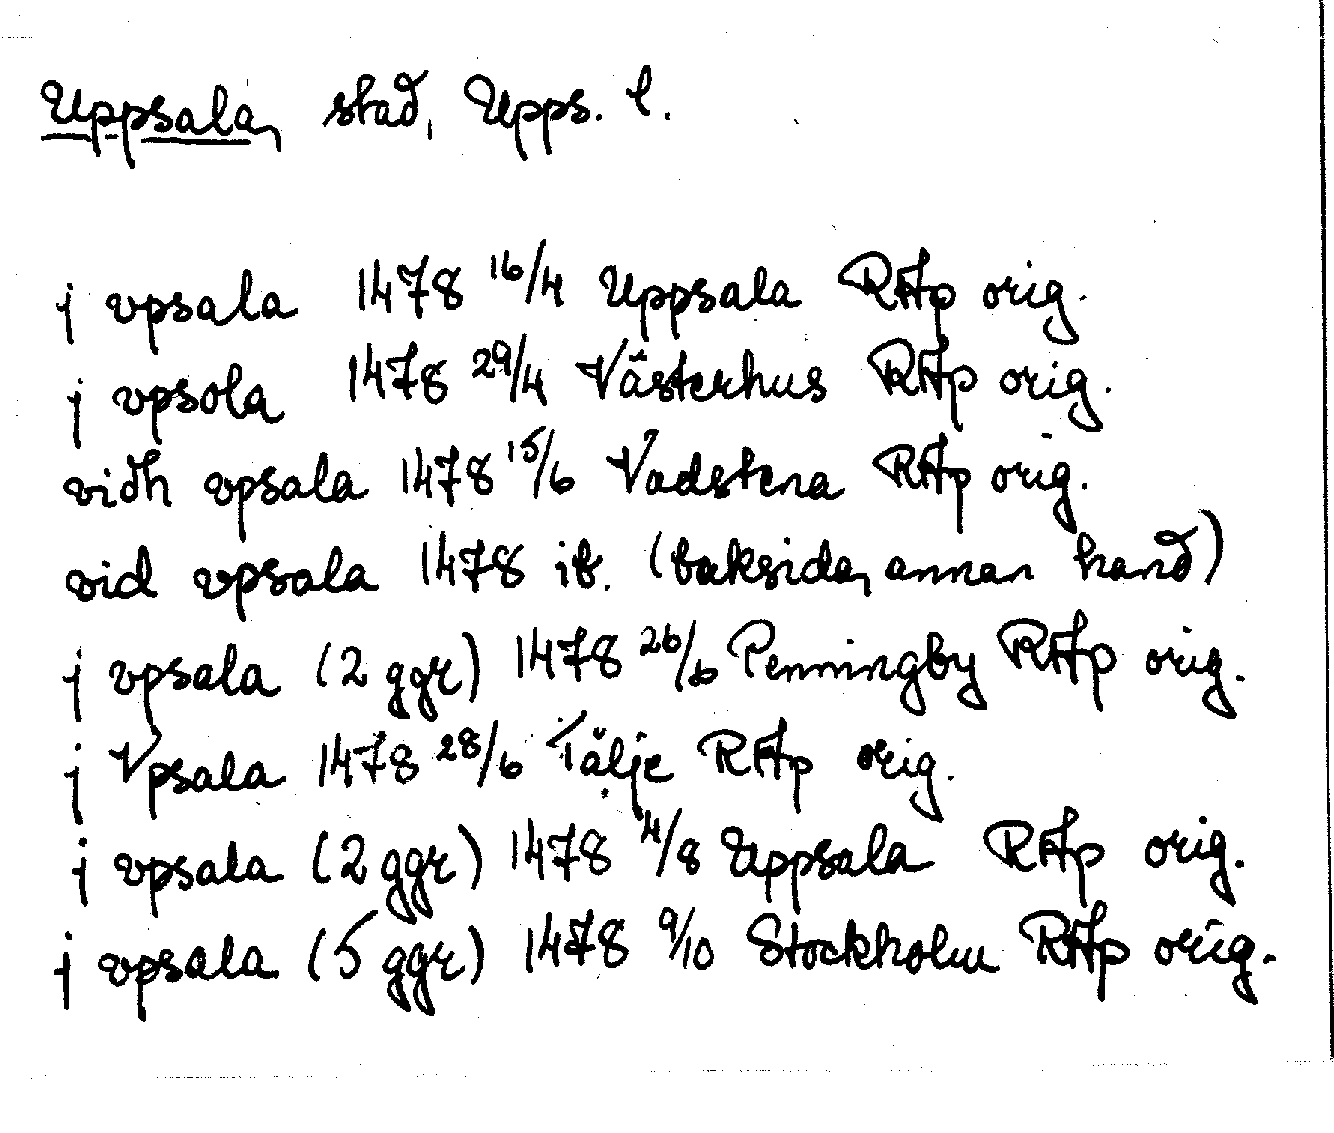 Uppsala, stad, Upps. l.
j vpsala 1478 16/4 Uppsala RAp orig.
j vpsola 1478 29/4 Västerhus RAp orig.
vidh vpsala 1478 15/6 Vadstena RAp orig.
vid vpsala 1478 ib. (baksida, annan hand)
j vpsala (2 ggr) 1478 26/6 Penningby RAp orig.
j Vpsala 1478 28/6 Tälje RAp orig.
j vpsala (2 ggr) 1478 4/8 Uppsala RAp orig.
j vpsala (5 ggr) 1478 9/10 Stockholm RAp orig.